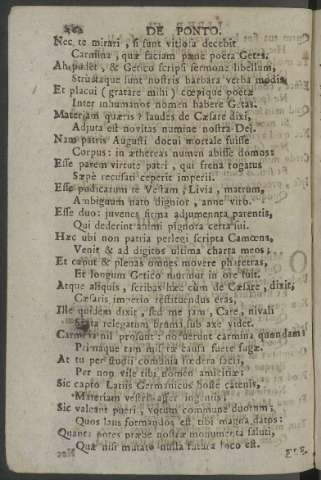 262 DE PONTO.
Nec te mirari, si sunt vitiosa decebit
Carmina, quæ faciam pæne poeta Getes.
Ah pudet, & Getico scripsi sermone libellum,
Structaque sunt nostris barbara verba modis
Et placui (gratare mihi) cœpique poetæ
Inter inhumanos nomen habere Getas.
Materiam quæris? laudes de Cæsare dixi,
Adjuta est novitas numine nostra Dei.
Nam patris Augusti docui mortale fuisse
Corpus: in æthereas numen abisse domos:
Esse parem virtute patri, qui frena rogatus
Sæpe recusati ceperit imperii.
Esse pudicarum te Vestam, Livia, matrum,
Ambiguum nato dignior, anne viro.
Esse duo: juvenes firma adjumenta parentis,
Qui dederint animi pignora certa sui.
Hæc ubi non patria perlegi scripta Camœna,
Venit & ad digitos ultima charta meos:
Et caput & plenas omnes movere pharetras,
Et longum Getico murmur in ore fuit.
Atque aliquis, scribas hæc cùm de Cæsare, dixit,
Cæsaris imperio restituendus eras,
Ille quidem dixit, sed me jam, Care, nivali
relegatum bruma sub axe videt.
Carmina nil prosunt: nocuerunt carmina quondam
Primaque tam miseræ causa fuere fugæ.
At tu per studii communia fœdera sacri,
Per non vile tibi nomen amicitiæ:
Sic capto Latiis Germanicus hoste catenis,
Materiam vestris
Sic valeant pueri, votum commune duorum;
Quos laus formandos est tibi magna datos:
Quanta potes præbe nostræ monumenta saluti,
Quæ nisi mutato nulla futura loco est.